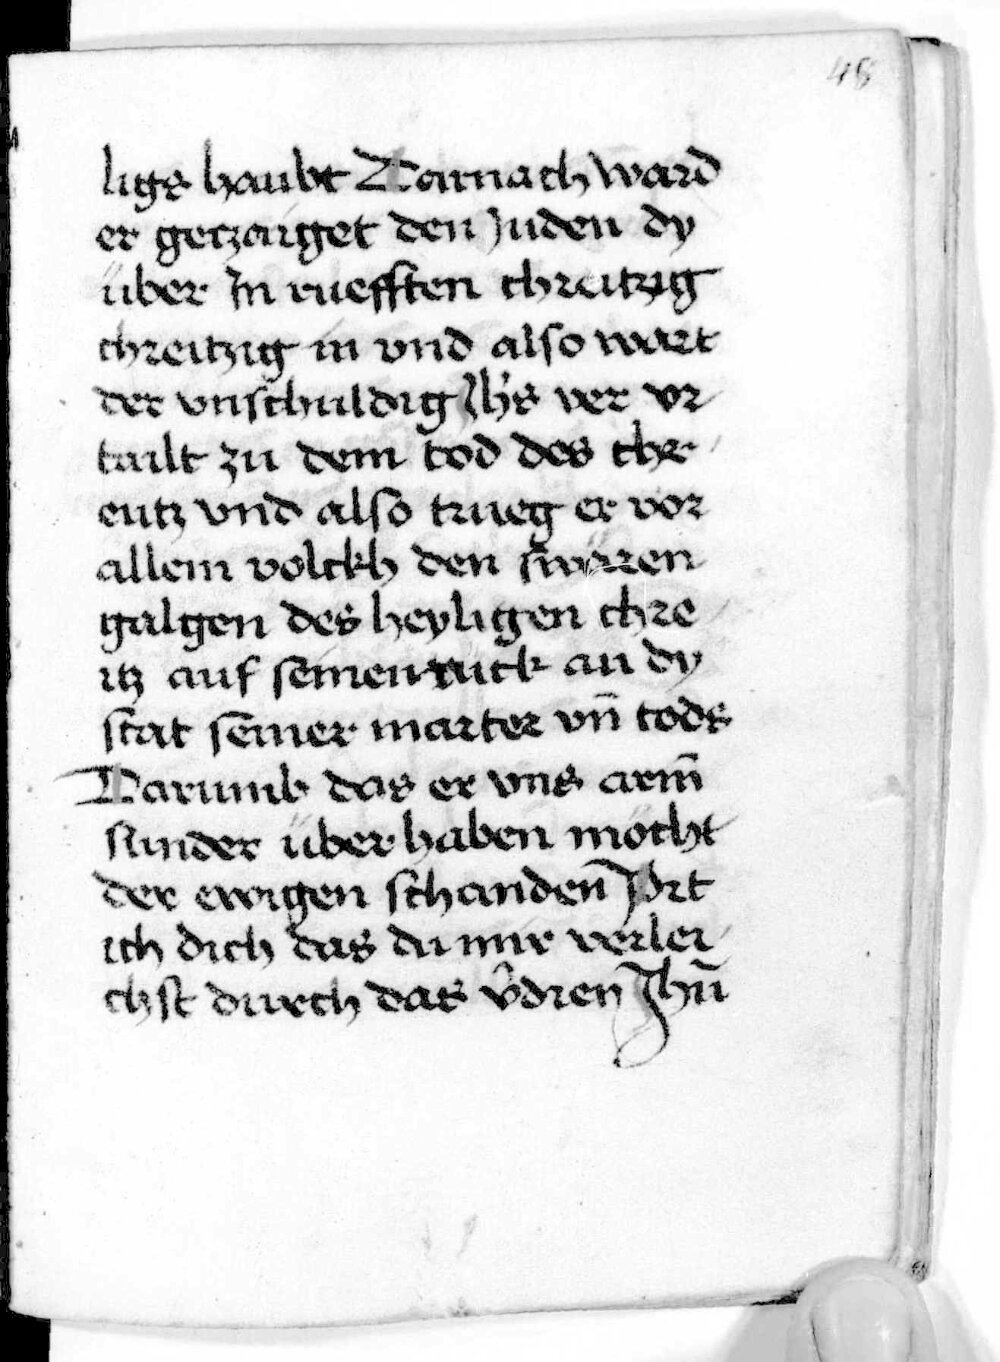 48
ligs haubt Darnach ward
er getzaiget den Juden dy
über In ruefften chreitzig
chreitzig in vnd also wart
der vnschuldig Jhs ver vr
tailt zu dem tod des chr
eutz vnd also trueg er vor
allem volckh den swären
galgen des heyligen chre
itz auf seinen ruck an dy
stat seiner marter vn̄ tods
Darumb das er vns arm̄
sünder über haben möcht
der ewigen schanden̄ Pit
ich dich das du mir verlei
chst durch das v̂dien Jhū